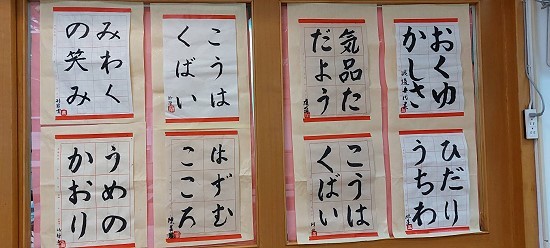 おくゆ
かしさ
気品た
だよう
こうは
くばい
みわく
の笑み
ひだり
うちわ
こうは
くばい
はずむ
こころ
うめの
かおり